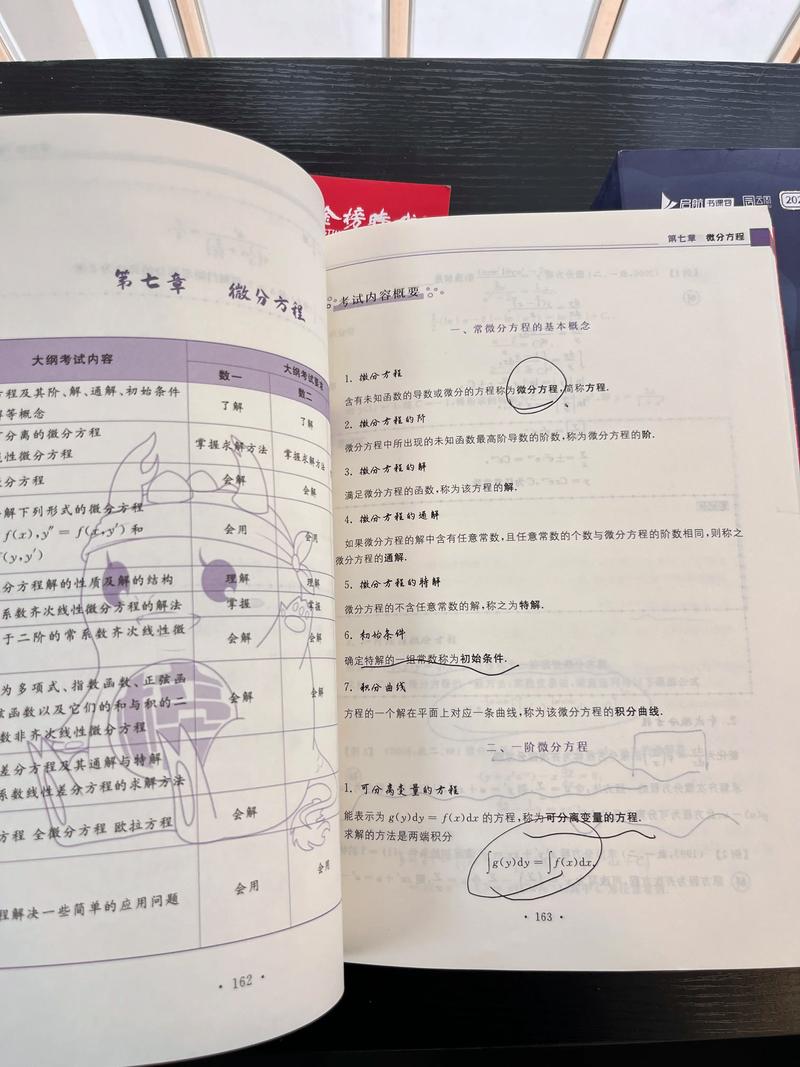 第七章 微分方程
大纲考试内容
大纲考试要求
数一
数二
方程及其阶、解、通解、初始条件
等概念
了解
了解
分离的微分方程
性微分方程
掌握求解方法
掌握求解方法
分方程
会解
会解
解下列形式的微分方程
f(x),y″ = f(x,y′) 和
(y,y′)
会用
会用
分方程解的性质及解的结构
理解
理解
系数齐次线性微分方程的解法
掌握
掌握
于二阶的常系数齐次线性微
会解
会解
为多项式、指数函数、正弦函
弦函数以及它们的和与积的二
数非齐次线性微分方程
会解
会解
差分方程及其通解与特解
系数线性差分方程的求解方法
方程 全微分方程 欧拉方程
会解
会解
程解决一些简单的应用问题
会用
会用
· 162 ·
启航
书课包
202
第七章 微分方程
考试内容概要
一、常微分方程的基本概念
1. 微分方程
含有未知函数的导数或微分的方程称为微分方程,简称方程.
2. 微分方程的阶
微分方程中所出现的未知函数最高阶导数的阶数,称为微分方程的阶.
3. 微分方程的解
满足微分方程的函数,称为该方程的解.
4. 微分方程的通解
如果微分方程的解中含有任意常数,且任意常数的个数与微分方程的阶数相同,则称之
微分方程的通解.
5. 微分方程的特解
微分方程的不含任意常数的解,称之为特解.
6. 初始条件
确定特解的一组常数称为初始条件.
7. 积分曲线
方程的一个解在平面上对应一条曲线,称为该微分方程的积分曲线.
二、一阶微分方程
1. 可分离变量的方程
能表示为 g(y)dy = f(x)dx 的方程,称为可分离变量的方程.
求解的方法是两端积分
∫g(y)dy = ∫f(x)dx.
· 163 ·